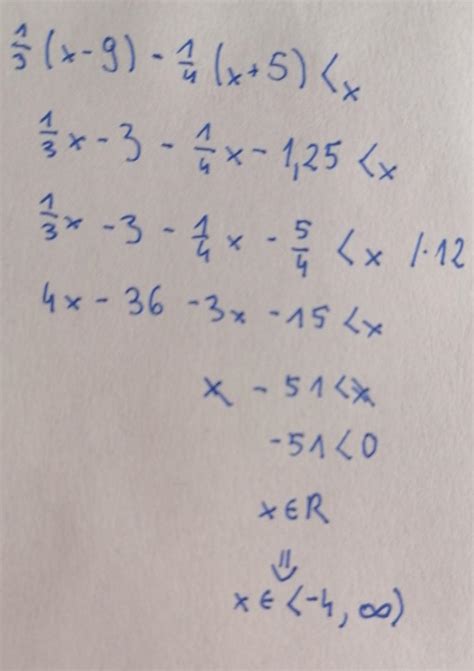 1/3 (x - 9) - 1/4 (x + 5) < x
1/3 x - 3 - 1/4 x - 1,25 < x
1/3 x - 3 - 1/4 x - 5/4 < x /·12
4x - 36 - 3x - 15 < x
x - 51 < x
-51 < 0
x ∈ R
⇓
x ∈ ⟨-4, ∞)